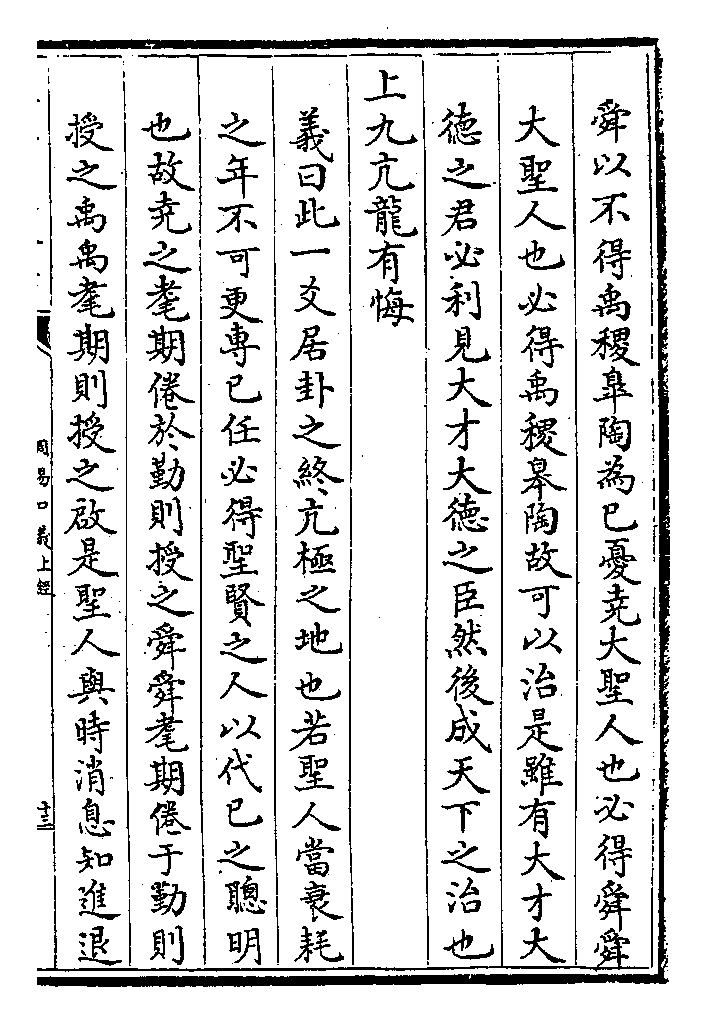 舜以不得禹稷臯陶為已憂堯大聖人也必得舜舜
大聖人也必得禹稷臯陶故可以治是雖有大才大
德之君必利見大才大德之臣然後成天下之治也
上九亢龍有悔
義曰此一爻居卦之終亢極之地也若聖人當衰耗
之年不可更專已任必得聖賢之人以代已之聰明
也故堯之耄期倦於勤則授之舜舜耄期倦于勤則
授之禹禹耄期則授之啟是聖人與時消息知進退
周易口義上經
十三